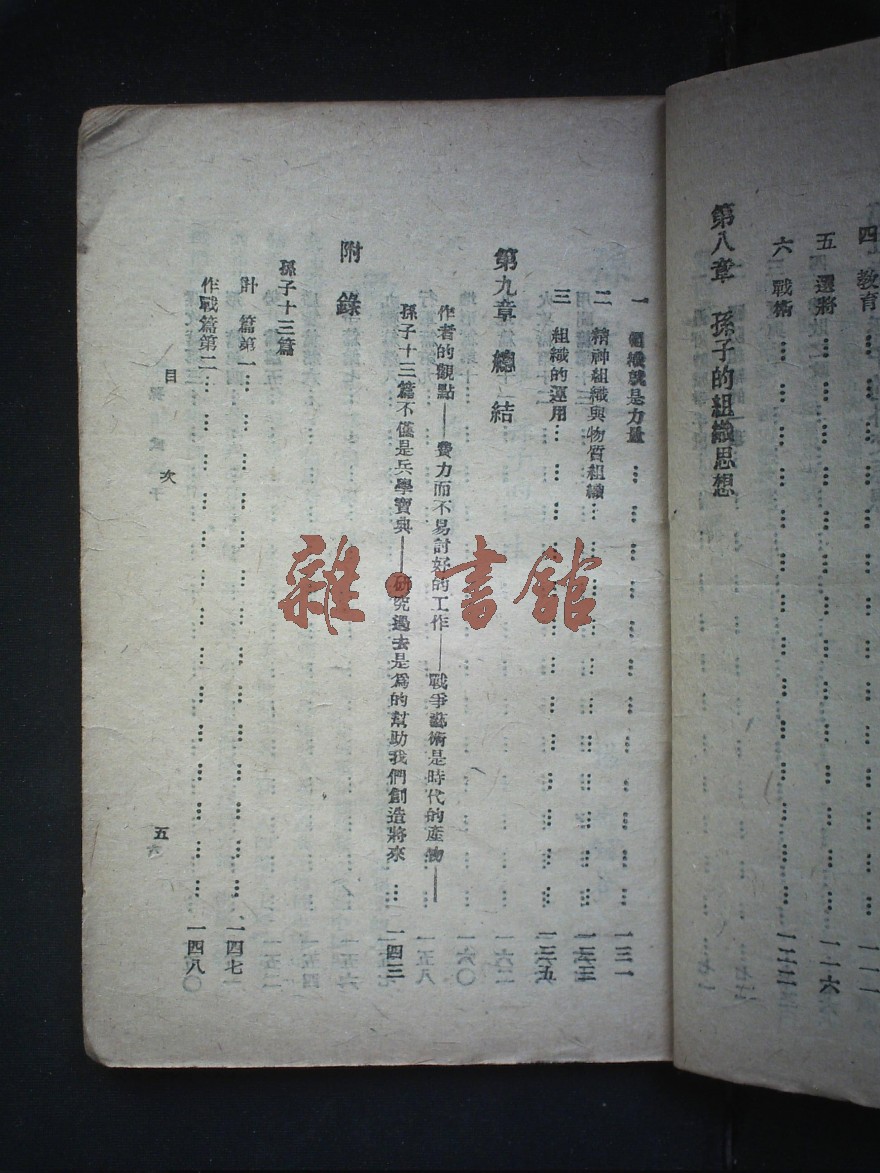 四 教育
五 選將 一一六
六 戰術 一二二
第八章 孫子的組織思想
一 組織就是力量 一三一
二 精神組織與物質組織 一三三
三 組織的運用 一三五
第九章 總結
作者的觀點——費力而不易討好的工作——戰爭藝術是時代的產物——
孫子十三篇不僅是兵學寶典——研究過去是爲的幫助我們創造將來 一四三
附錄
孫子十三篇
計篇第一 一四七
作戰篇第二 一四八
目次
五
雜·書館